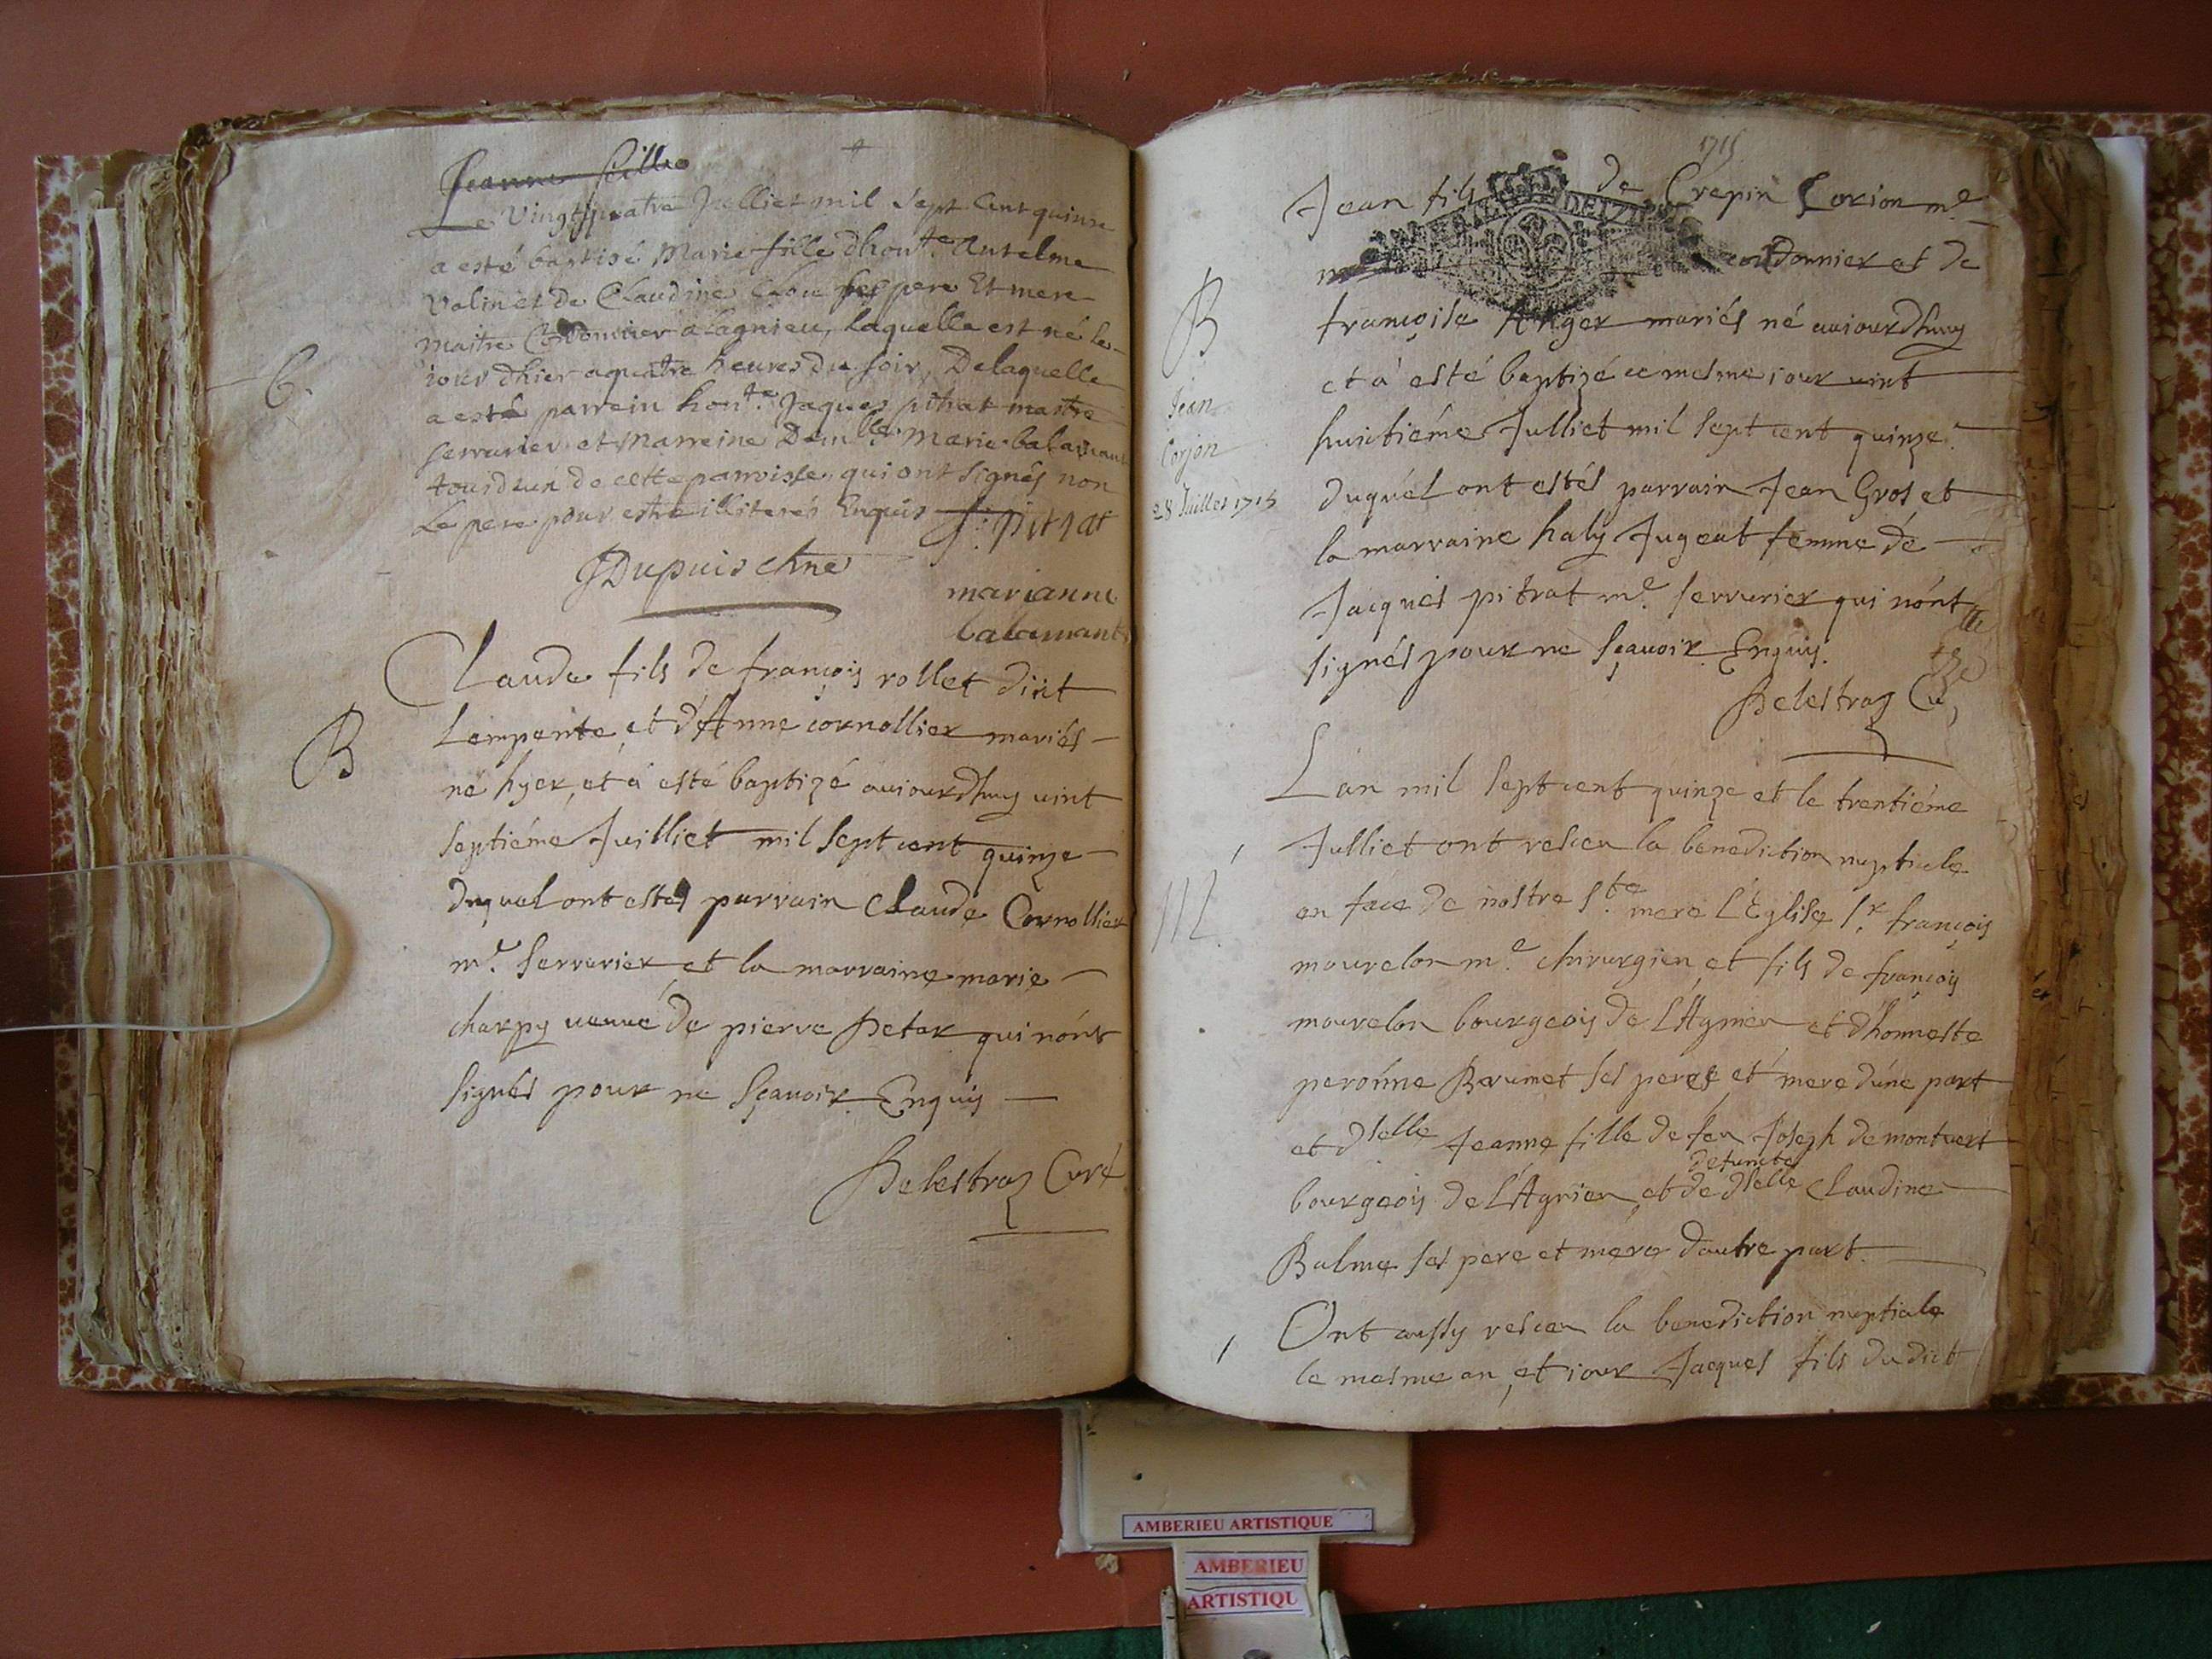 Jeanne fille
Le Vingtquatre Juelliet mil sept cent quinze
a esté baptisé Marie fille dhon.te Antelme
Volin et de Claudine pere Et mere
maitre Cordonnier a Lagnieu, laquelle est né le
iour dhier a quatre heures du soir, De laquelle
a esté parrein hon.te Jaques pitrat maitre
serrurier et Marreine Dem.lle Marie
tous deux de cette parroisse, qui ont signés non
Le pere pour estre illiterés Enquis J: pitrat
JDupuis
marianne
balamant
B
Claude fils de françois rollet diit
Lempente et d'Anne cornollier mariés
né hyer, et á esté baptizé auiourdhuy uint
septiéme Juilliet mil sept cent quinze
duquel ont estés parrain Claude Cornollier
m.e serrurier et la marraine marie
charpy veuve de pierre Detar qui nónt
signés pour ne sçavoir Enquis
Delestraz Curé
1715
Jean fils de Crepin Corion m.e
cordonnier et de
françoise Anger mariés né auiourdhuy
et á esté baptizé ce mesme iour uint
huictiéme Julliet mil sept cent quinze
duquel ont estés parrain Jean Gros et
la marraine haly Jugeat femme de
Jacques pitrat m.e serrurier qui nónt
signés pour ne sçavoir Enquis.
Delestraz Cu,
B
Jean
Corjon
28 Juillet 1715
L'an mil sept cent quinze et le trentiéme
Julliet ont resceu la benediction nuptiale
en face de nostre s.te mere L'Eglise s.r françois
mourelon m.e chirurgien et fils de françois
mourelon bourgeois de L'Agnieu et d'honneste
perónne Brumet ses peres et mere dúne part
et dlelle Jeanne fille de feu Joseph de montvert
bourgeois de L'Agnieu, et de defuncte dlelle Claudine
Balme ses pere et mere dautre part.
Ont aussy resceu la benediction nuptiale
le mesme an et iour Jacques fils du dict
M.
AMBERIEU ARTISTIQUE
AMBERIEU
ARTISTIQU